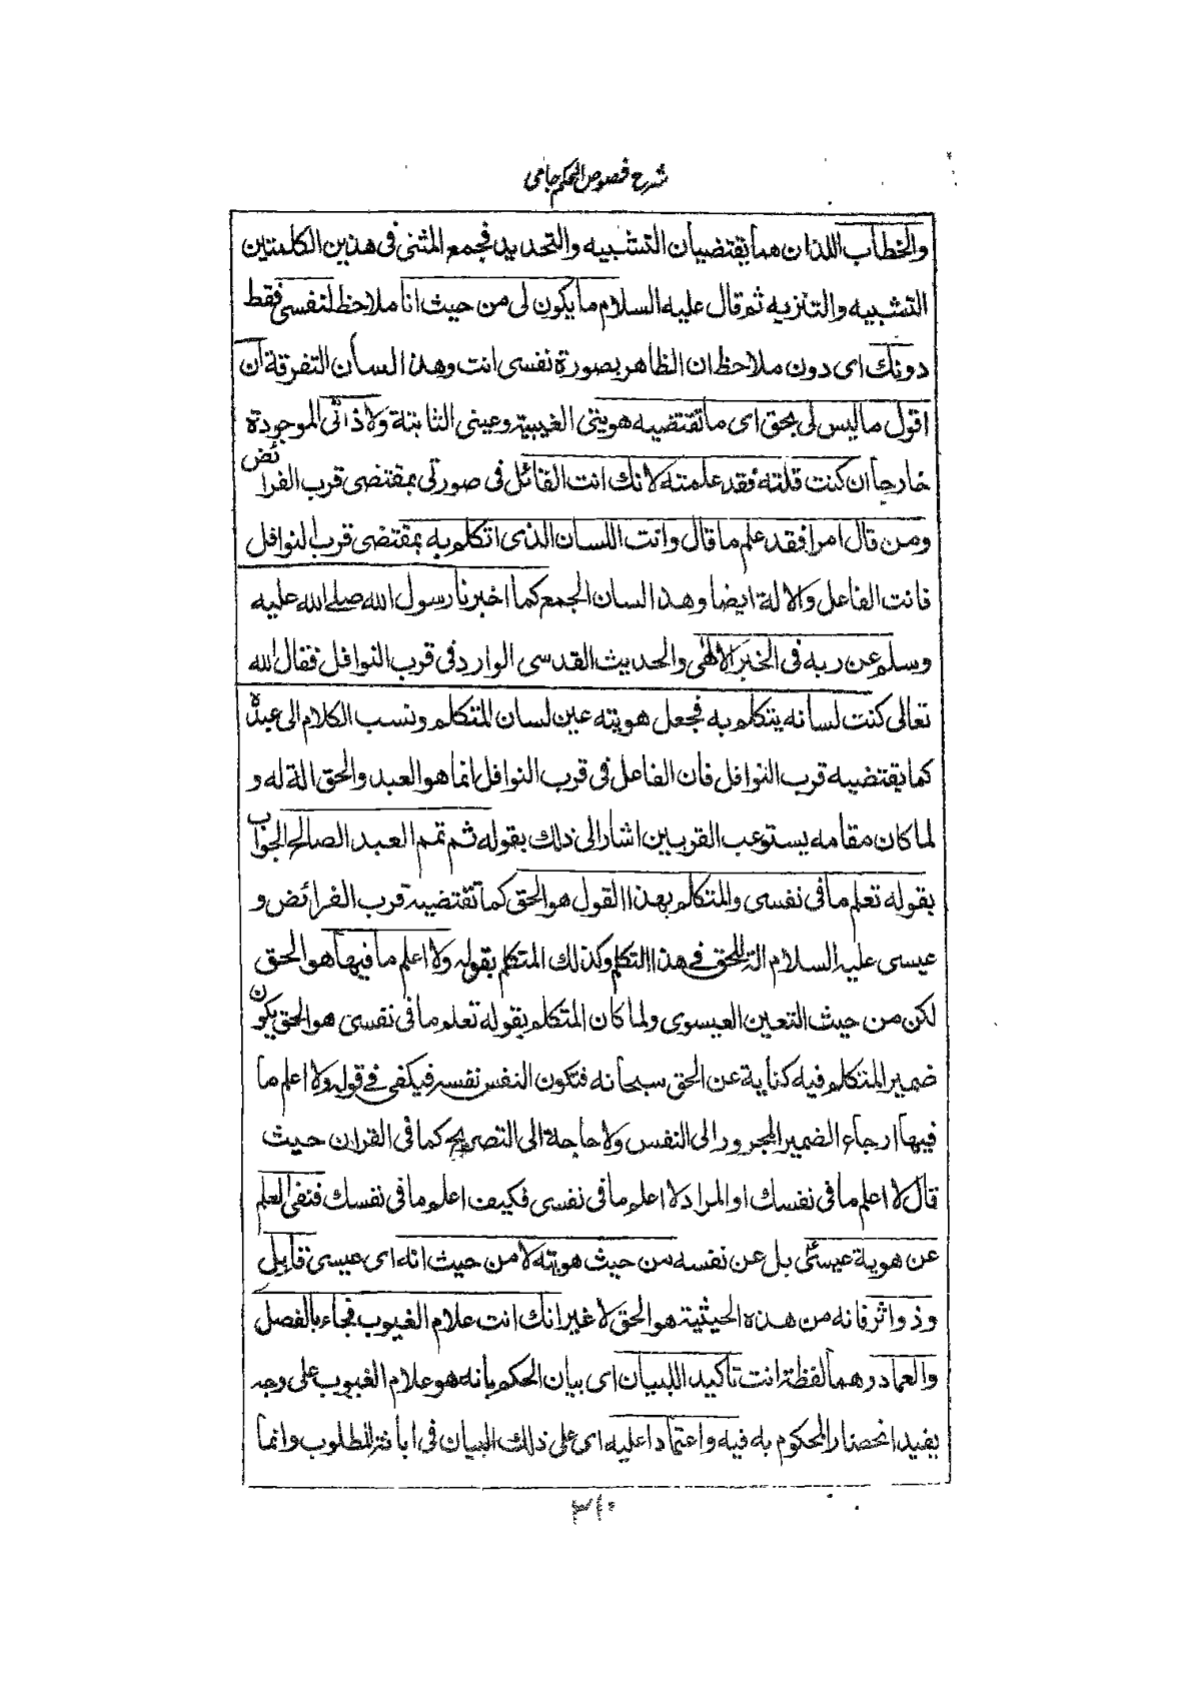 شرح فصوص الحکم جامی
والخطاب اللذان هما يقتضيان التشبيه والتحديد فجمع المثنى فى هذين الكلمتين
التشبيه والتنزيه ثم قال عليه السلام ما يكون لى من حيث انا ملاحظ لنفسى فقط
دونك اى دون ملاحظ ان الظاهر بصورة نفسى انت وهذا لسان التفرقة ان
اقول ما ليس لى بحق اى ما تقتضيه هويتى الغيبية وعينى الثابتة ولا ذاتى الموجودة
خارجا ان كنت قلته فقد علمته لانك انت القائل فى صورتى بمقتضى قرب الفرائض
ومن قال امرا فقد علم ما قال وانت اللسان الذى اتكلم به بمقتضى قرب النوافل
فانت الفاعل والالة ايضا وهذا لسان الجمع كما اخبرنا رسول الله صلى الله عليه
وسلم عن ربه فى الخبر الالهى والحديث القدسى الوارد فى قرب النوافل فقال الله
تعالى كنت لسانه يتكلم به فجعل هويته عين لسان المتكلم ونسب الكلام الى عبده
كما يقتضيه قرب النوافل فان الفاعل فى قرب النوافل انما هو العبد والحق الة له و
لما كان مقامه يستوعب القربين اشار الى ذلك بقوله ثم تمم العبد الصالح الجواب
بقوله تعلم ما فى نفسى والمتكلم بهذا القول هو الحق كما تقتضيه قرب الفرائض و
عيسى عليه السلام الة للحق فى هذا التكلم وكذلك المتكلم بقوله ولا اعلم ما فيها هو الحق
لكن من حيث التعين العيسوى ولما كان المتكلم بقوله تعلم ما فى نفسى هو الحق يكون
ضمير المتكلم فيه كناية عن الحق سبحانه فتكون النفس نفسه فيكفى فى قوله ولا اعلم ما
فيها ارجاع الضمير المجرور الى النفس ولا حاجة الى التصريح كما فى القران حيث
قال لا اعلم ما فى نفسك او المراد لا اعلم ما فى نفسى فكيف اعلم ما فى نفسك فنفى العلم
عن هوية عيسى بل عن نفسه من حيث هويته لا من حيث انه اى عيسى قايل
وذو اثر فانه من هذه الحيثية هو الحق لا غير انك انت علام الغيوب فجاء بالفصل
والعماد وهما لفظة انت تاكيدا للبيان اى بيان الحكم بانه هو علام الغيوب على وجه
يفيد انحصار المحكوم به فيه واعتمادا عليه اى على ذلك البيان فى ابانة المطلوب وانما
۳۱۰